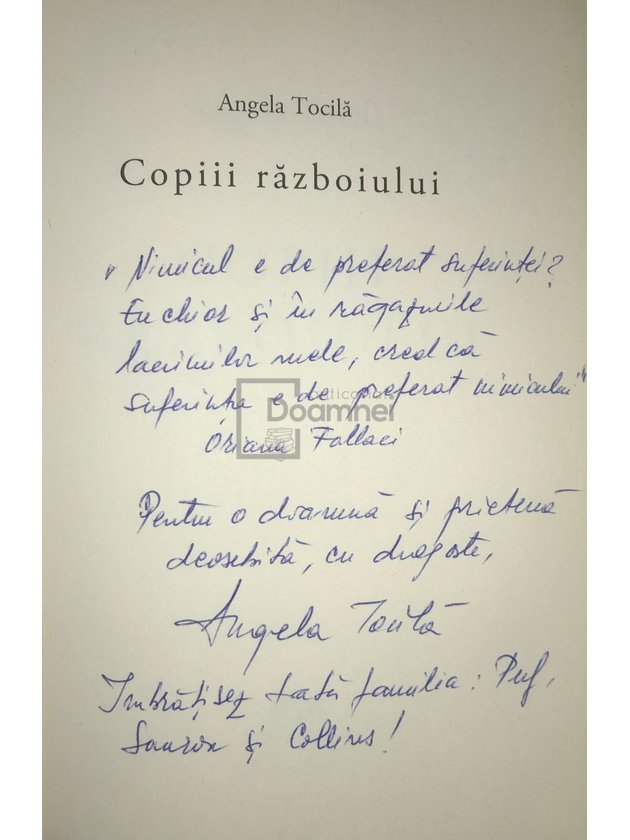 Angela Tocilă
Copiii războiului
„Nimicul e de preferat suferinței?
Eu chiar și în răgazurile
lacrimilor mele, cred că
suferința e de preferat nimicului"
Oriana Fallaci
Anticariat
Doamnei
Pentru o doamnă și prietenă
deosebită, cu dragoste,
Angela Tocilă
Îmbrățișez toată familia: Puf,
Sauron și Collins!